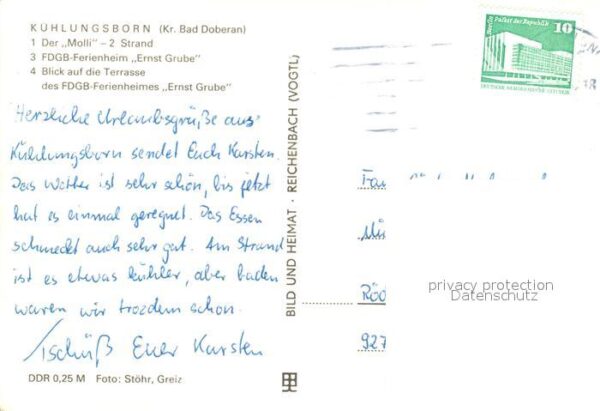 KÜHLUNGSBORN (Kr. Bad Doberan)
1 Der „Molli" – 2 Strand
3 FDGB-Ferienheim „Ernst Grube"
4 Blick auf die Terrasse
des FDGB-Ferienheimes „Ernst Grube"
Herzliche Urlaubsgrüße aus
Kühlungsborn sendet Euch Karsten.
Das Wetter ist sehr schön, bis jetzt
hat es einmal geregnet. Das Essen
schmeckt auch sehr gut. Am Strand
ist es etwas kühler, aber baden
waren wir trozdem schon.
Tschüß Euer Karsten
DDR 0,25 M Foto: Stöhr, Greiz
BILD UND HEIMAT · REICHENBACH (VOGTL)
Berlin Palast der Republik
10
DEUTSCHE DEMOKRATISCHE REPUBLIK
Fam
Röd
927
privacy protection
Datenschutz